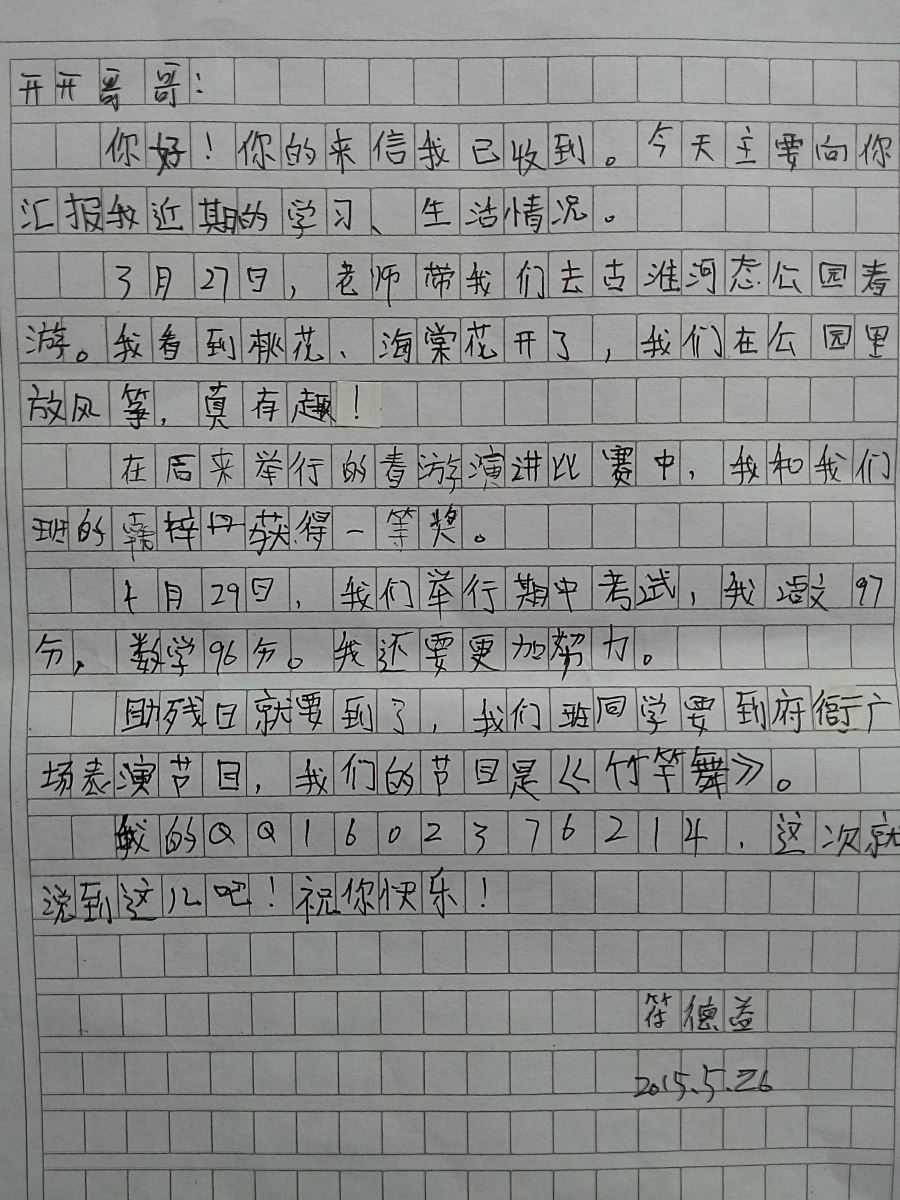 开开哥哥：
你好！你的来信我已收到。今天主要向你
汇报我近期的学习、生活情况。
3月27日，老师带我们去古淮河态公园春
游。我看到桃花、海棠花开了，我们在公园里
放风筝，真有趣！
在后来举行的春游演讲比赛中，我和我们
班的梓丹获得一等奖。
4月29日，我们举行期中考试，我语文97
分，数学96分。我还要更加努力。
助残日就要到了，我们班同学要到府衙广
场表演节目，我们的节目是《竹竿舞》。
我的QQ1602376214，这次就
说到这儿吧！祝你快乐！
符德益
2015.5.26